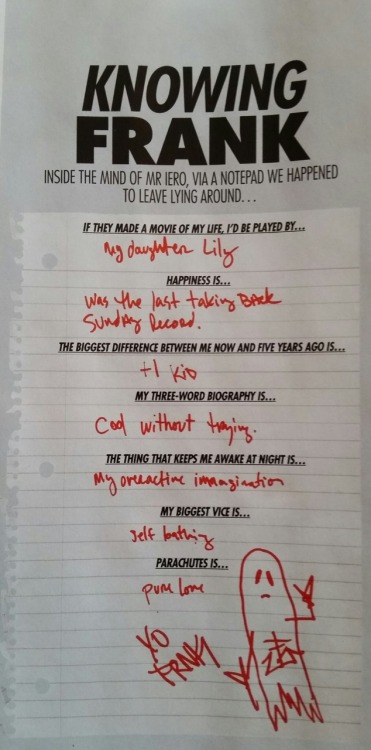 KNOWING
FRANK
INSIDE THE MIND OF MR IERO, VIA A NOTEPAD WE HAPPENED
TO LEAVE LYING AROUND...
IF THEY MADE A MOVIE OF MY LIFE, I'D BE PLAYED BY...
My daughter Lily
HAPPINESS IS...
was the last taking Back
Sunday Record.
THE BIGGEST DIFFERENCE BETWEEN ME NOW AND FIVE YEARS AGO IS...
+1 KID
MY THREE-WORD BIOGRAPHY IS...
Cool without trying.
THE THING THAT KEEPS ME AWAKE AT NIGHT IS...
My overactive immagination
MY BIGGEST VICE IS...
self loathing
PARACHUTES IS...
pure love
XO
FRNK